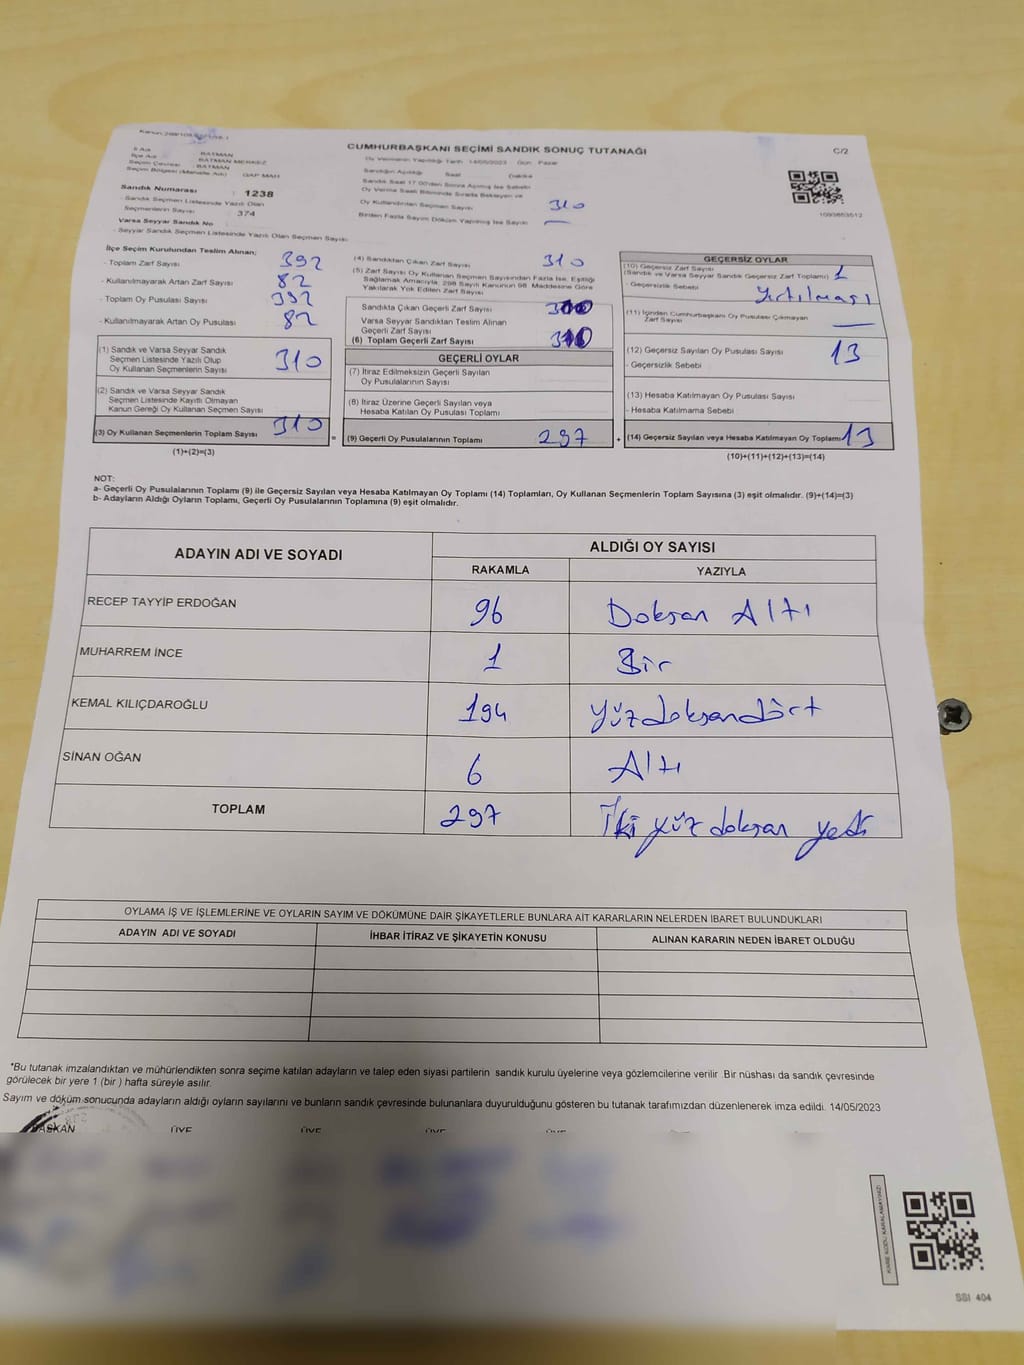 CUMHURBAŞKANI SEÇİMİ SANDIK SONUÇ TUTANAĞI
C/2
İl Adı : BATMAN
İlçe Adı : BATMAN MERKEZ
Seçim Çevresi : BATMAN
Seçim Bölgesi (Mahalle Adı) GAP MAH
Sandık Numarası : 1238
Sandık Seçmen Listesinde Yazılı Olan
Seçmenlerin Sayısı : 374
Varsa Seyyar Sandık No
- Seyyar Seçmen Listesinde Yazılı Olan Seçmen Sayısı:
Oy Vermenin Yapıldığı Tarih 14/05/2023 Gün Pazar
Sandığın Açıldığı Saat Dakika
Sandık Saat 17.00'den Sonra Açılmış İse Sebebi
Oy Verme Saati Bitiminde Sırada Bekleyen ve
Oy Kullandırılan Seçmen Sayısı 310
Birden Fazla Sayım Döküm Yapılmış İse Sayısı —
1093853512
İlçe Seçim Kurulundan Teslim Alınan;
- Toplam Zarf Sayısı 392
- Kullanılmayarak Artan Zarf Sayısı 82
- Toplam Oy Pusulası Sayısı 392
- Kullanılmayarak Artan Oy Pusulası 82
(1) Sandık ve Varsa Seyyar Sandık
Seçmen Listesinde Yazılı Olup
Oy Kullanan Seçmenlerin Sayısı 310
(2) Sandık ve Varsa Seyyar Sandık
Seçmen Listesinde Kayıtlı Olmayan
Kanun Gereği Oy Kullanan Seçmen Sayısı
(3) Oy Kullanan Seçmenlerin Toplam Sayısı 310
(1)+(2)=(3)
=
(4) Sandıktan Çıkan Zarf Sayısı 310
(5) Zarf Sayısı Oy Kullanan Seçmen Sayısından Fazla İse, Eşitliği
Sağlamak Amacıyla, 298 Sayılı Kanunun 98. Maddesine Göre
Yakılarak Yok Edilen Zarf Sayısı
Sandıkta Çıkan Geçerli Zarf Sayısı
Varsa Seyyar Sandıktan Teslim Alınan
Geçerli Zarf Sayısı
(6) Toplam Geçerli Zarf Sayısı 310
GEÇERLİ OYLAR
(7) İtiraz Edilmeksizin Geçerli Sayılan
Oy Pusulalarının Sayısı
(8) İtiraz Üzerine Geçerli Sayılan veya
Hesaba Katılan Oy Pusulası Toplamı
(9) Geçerli Oy Pusulalarının Toplamı 297
+
GEÇERSİZ OYLAR
(10) Geçersiz Zarf Sayısı
(Sandık ve Varsa Seyyar Sandık Geçersiz Zarf Toplamı) 1
- Geçersizlik Sebebi yırtılması
(11) İçinden Cumhurbaşkanı Oy Pusulası Çıkmayan
Zarf Sayısı —
(12) Geçersiz Sayılan Oy Pusulası Sayısı 13
- Geçersizlik Sebebi
(13) Hesaba Katılmayan Oy Pusulası Sayısı
- Hesaba Katılmama Sebebi
(14) Geçersiz Sayılan veya Hesaba Katılmayan Oy Toplamı 13
(10)+(11)+(12)+(13)=(14)
NOT:
a- Geçerli Oy Pusulalarının Toplamı (9) ile Geçersiz Sayılan veya Hesaba Katılmayan Oy Toplamı (14) Toplamları, Oy Kullanan Seçmenlerin Toplam Sayısına (3) eşit olmalıdır. (9)+(14)=(3)
b- Adayların Aldığı Oyların Toplamı, Geçerli Oy Pusulalarının Toplamına (9) eşit olmalıdır.
ADAYIN ADI VE SOYADI ALDIĞI OY SAYISI
RAKAMLA YAZIYLA
RECEP TAYYİP ERDOĞAN 96 Doksan Altı
MUHARREM İNCE 1 Bir
KEMAL KILIÇDAROĞLU 194 yüzdoksandört
SİNAN OĞAN 6 Altı
TOPLAM 297 İki yüz doksan yedi
OYLAMA İŞ VE İŞLEMLERİNE VE OYLARIN SAYIM VE DÖKÜMÜNE DAİR ŞİKAYETLERLE BUNLARA AİT KARARLARIN NELERDEN İBARET BULUNDUKLARI
ADAYIN ADI VE SOYADI İHBAR İTİRAZ VE ŞİKAYETİN KONUSU ALINAN KARARIN NEDEN İBARET OLDUĞU
*Bu tutanak imzalandıktan ve mühürlendikten sonra seçime katılan adayların ve talep eden siyasi partilerin sandık kurulu üyelerine veya gözlemcilerine verilir .Bir nüshası da sandık çevresinde
görülecek bir yere 1 (bir ) hafta süreyle asılır.
Sayım ve döküm sonucunda adayların aldığı oyların sayılarını ve bunların sandık çevresinde bulunanlara duyurulduğunu gösteren bu tutanak tarafımızdan düzenlenerek imza edildi. 14/05/2023
BAŞKAN ÜYE ÜYE ÜYE ÜYE
KARE KODU KARALAMAYINIZ!
SSI 404